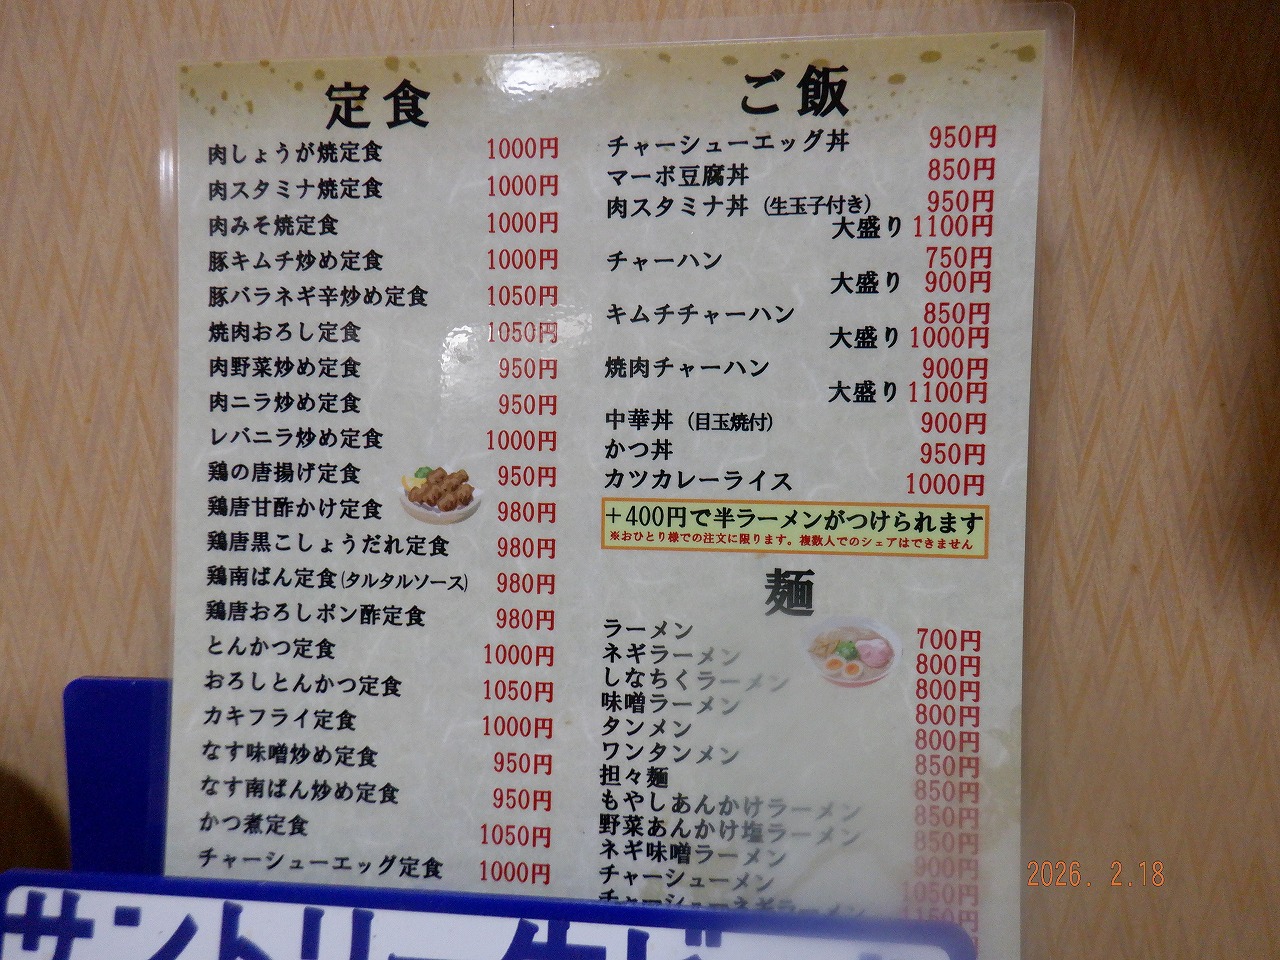 定食
肉しょうが焼定食 1000円
肉スタミナ焼定食 1000円
肉みそ焼定食 1000円
豚キムチ炒め定食 1000円
豚バラネギ辛炒め定食 1050円
焼肉おろし定食 1050円
肉野菜炒め定食 950円
肉ニラ炒め定食 950円
レバニラ炒め定食 1000円
鶏の唐揚げ定食 950円
鶏唐甘酢かけ定食 980円
鶏唐黒こしょうだれ定食 980円
鶏南ばん定食(タルタルソース) 980円
鶏唐おろしポン酢定食 980円
とんかつ定食 1000円
おろしとんかつ定食 1050円
カキフライ定食 1000円
なす味噌炒め定食 950円
なす南ばん炒め定食 950円
かつ煮定食 1050円
チャーシューエッグ定食 1000円
ご飯
チャーシューエッグ丼 950円
マーボ豆腐丼 850円
肉スタミナ丼(生玉子付き) 950円
大盛り 1100円
チャーハン 750円
大盛り 900円
キムチチャーハン 850円
大盛り 1000円
焼肉チャーハン 900円
大盛り 1100円
中華丼(目玉焼付) 900円
かつ丼 950円
カツカレーライス 1000円
+400円で半ラーメンがつけられます
※おひとり様での注文に限ります。複数人でのシェアはできません
麺
ラーメン 700円
ネギラーメン 800円
しなちくラーメン 800円
味噌ラーメン 800円
タンメン 800円
ワンタンメン 850円
担々麺 850円
もやしあんかけラーメン 850円
野菜あんかけ塩ラーメン 850円
ネギ味噌ラーメン 900円
チャーシューメン 1050円
チャーシューネギラーメン 1150円
サントリー生ビ
2026. 2.18